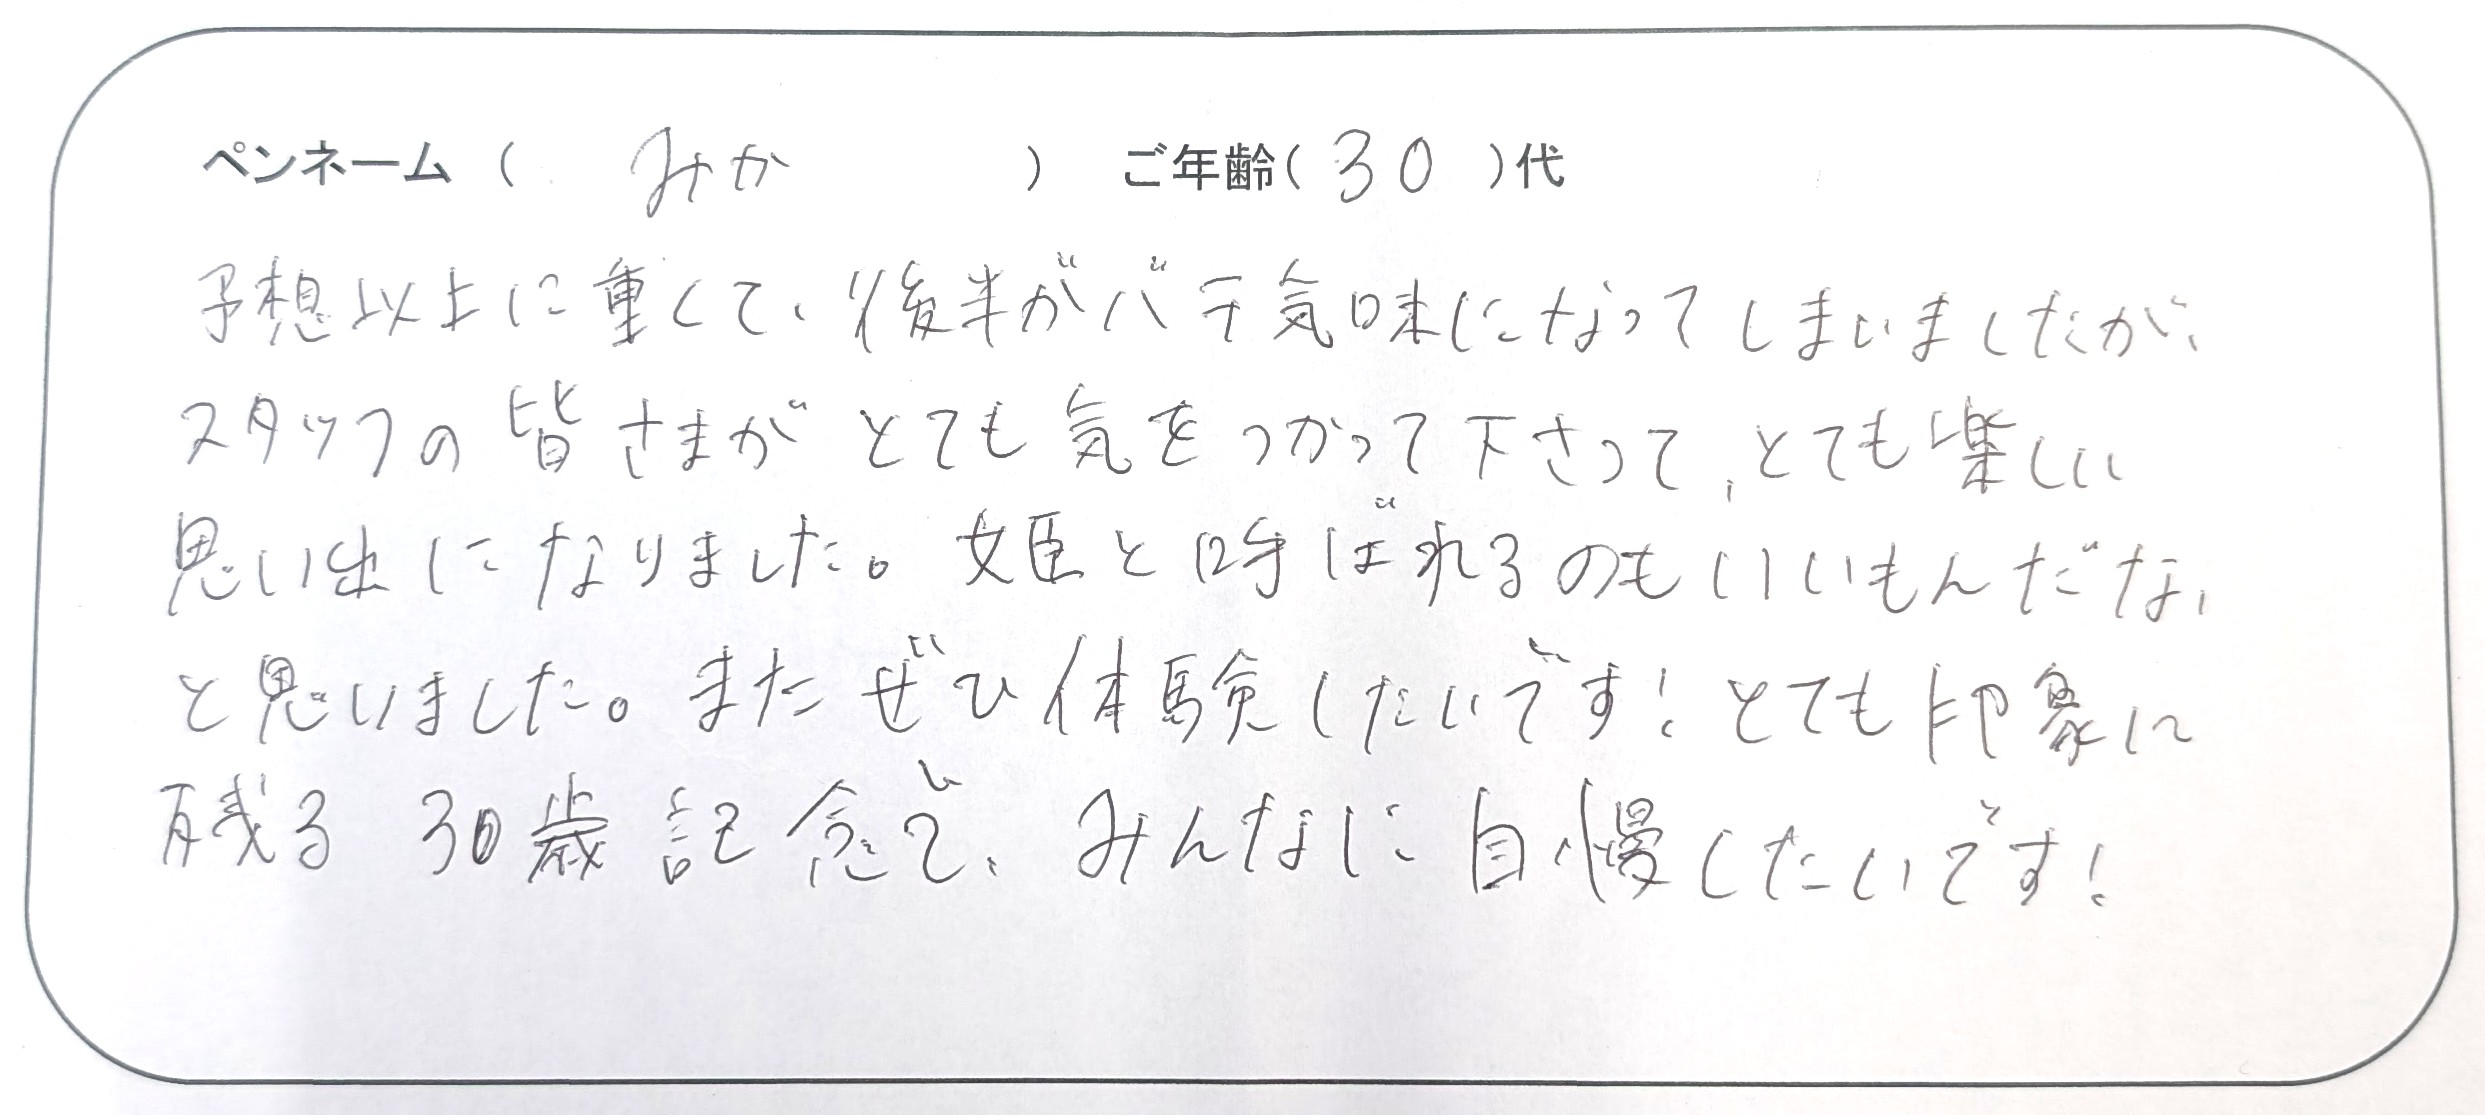 ペンネーム ( みか ) ご年齢( 30 )代
予想以上に重くて、後半がバテ気味になってしまいましたが、
スタッフの皆さまがとても気をつかって下さって、とても楽しい
思い出になりました。姫と呼ばれるのもいいもんだな、
と思いました。またぜひ体験したいです!とても印象に
残る30歳記念で、みんなに自慢したいです!